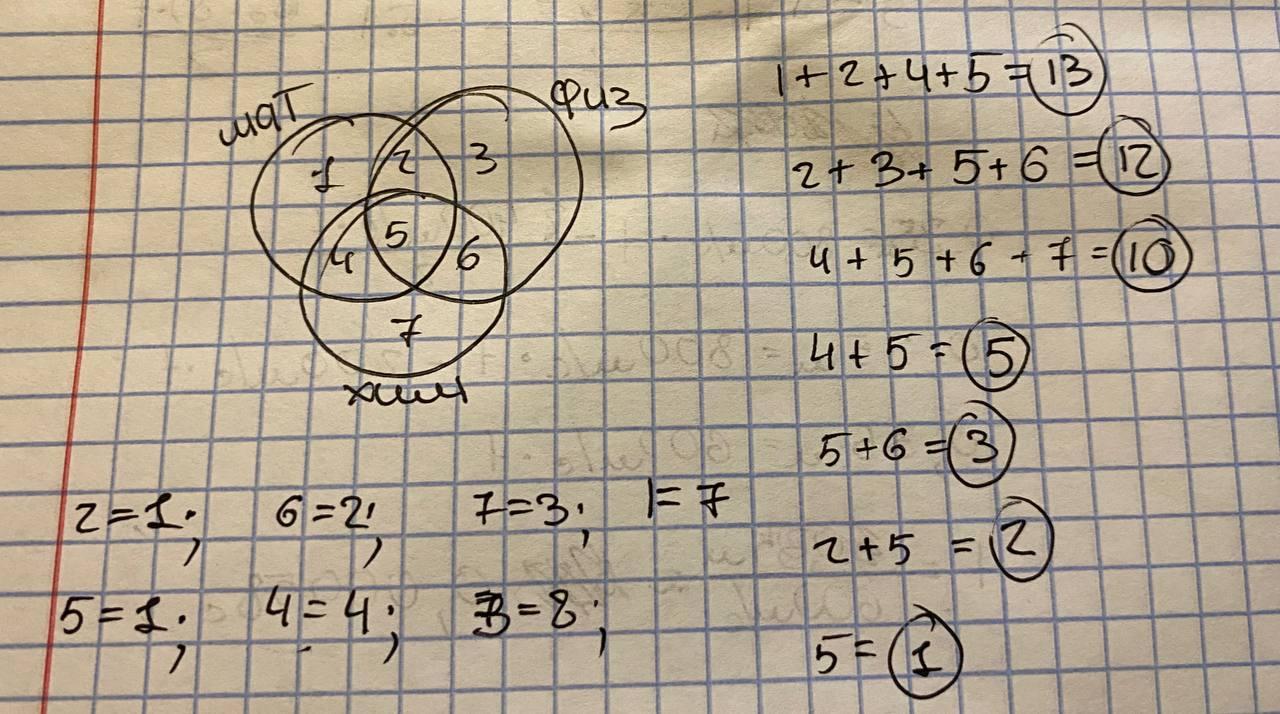 мат
физ
1 2 3
4 5 6
7
хим
1+2+4+5=13
2+3+5+6=12
4+5+6+7=10
4+5=5
5+6=3
2+5=2
5=1
2=1; 6=2; 7=3; 1=7
5=1; 4=4; 3=8;